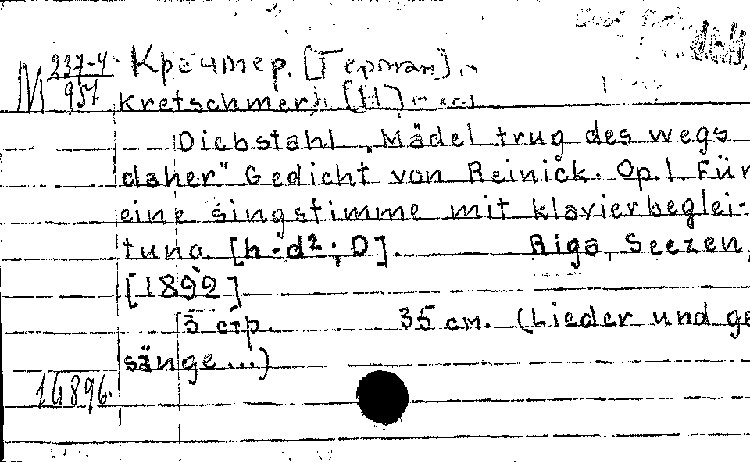 М 237-4/951
Кречмер. [Герман].
Kretschmer, [H]
Diebstahl „Mädel trug des wegs
daher" Gedicht von Reinick. Op.1 Für
eine singstimme mit klavierbeglei-
tung [h-d²; D]. Riga, Seezen,
[1892]
5 стр. 35 см. (Lieder und ge
sänge...)
16896.